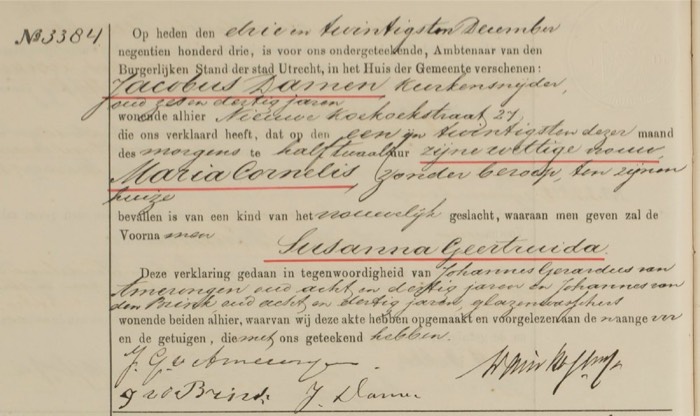 No 3384
Op heden den drie en twintigsten December
negentien honderd drie, is voor ons ondergeteekende, Ambtenaar van den
Burgerlijken Stand der stad Utrecht, in het Huis der Gemeente verschenen:
Jacobus Damen, Kurkensnijder,
oud zes en dertig jaren
wonende alhier Nieuwe Koekoekstraat 21,
die ons verklaard heeft, dat op den een en twintigsten dezer maand
des morgens te half twaalf ure zijne wettige vrouw,
Maria Cornelis, zonder beroep, ten zijnen
huize
bevallen is van een kind van het vrouwelijk geslacht, waaraan men geven zal de
Voornamen
Susanna Geertruida.
Deze verklaring gedaan in tegenwoordigheid van Johannes Gerardus van
Amerongen oud acht en dertig jaren en Johannes van
den Brink, oud acht en dertig jaren, glazenwasschers
wonende beiden alhier, waarvan wij deze akte hebben opgemaakt en voorgelezen aan de
en de getuigen, die met ons geteekend hebben.
J. G. v Amerongen
J v d Brink J. Damen